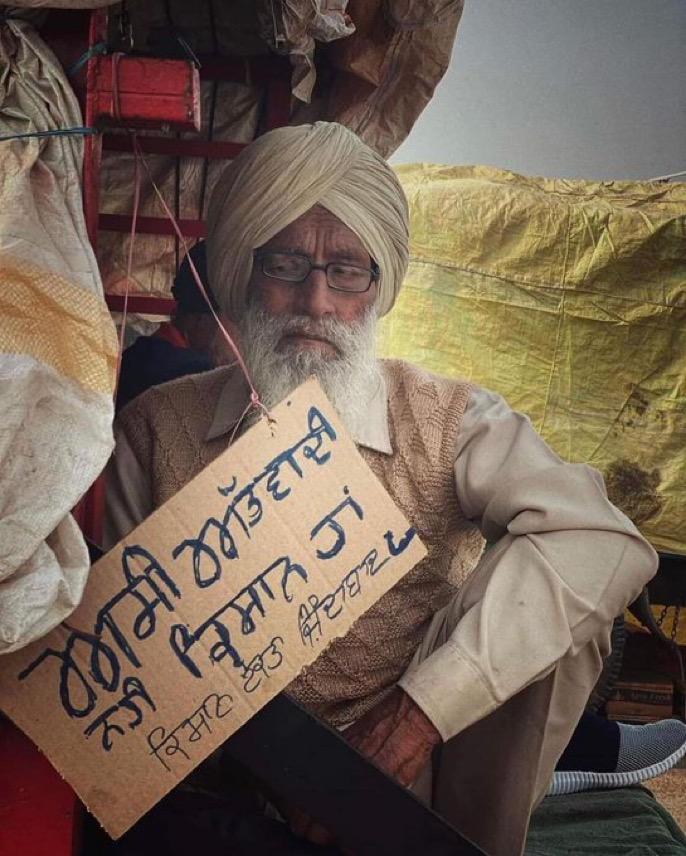 ਅਸੀ ਅੱਤਵਾਦੀ
ਨਹੀ ਕਿਸਾਨ ਹਾਂ
ਕਿਸਾਨ ਏਕਤਾ ਜਿੰਦਾਬਾਦ